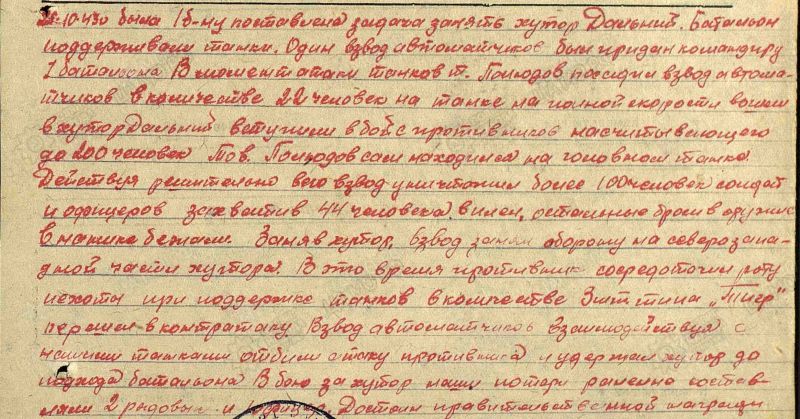 10.43г была 1 б-ну поставлена задача занять хутор Дальний. Батальон
поддерживали танки. Один взвод автоматчиков был придан командиру
1 батальона В момент атаки танков т. Полюдов посадил взвод автома-
тчиков в количестве 22 человек на танке на полной скорости вошли
в хутор Дальний вступили в бой с противников насчитывающого
до 200 человек Тов. Полюдов сам находился на головном танке.
Действуя решительно его взвод уничтожил более 100 человек солдат
и офицеров захватив 44 человека в плен, остальные бросив оружие
в панике бежали. Заняв хутор, взвод занял оборону на северозапа-
дной части хутора. В это время противник сосредоточил роту
пехоты при поддержке танков в количестве 3 шт типа „Тигр"
перешел в контратаку Взвод автоматчиков взаимодействуя с
нашими танками отбили атаку противника и удержал хутор до
подхода батальона В бою за хутор наши потери ранено состав-
ляли 2 рядовых и Достоин правительственной награды